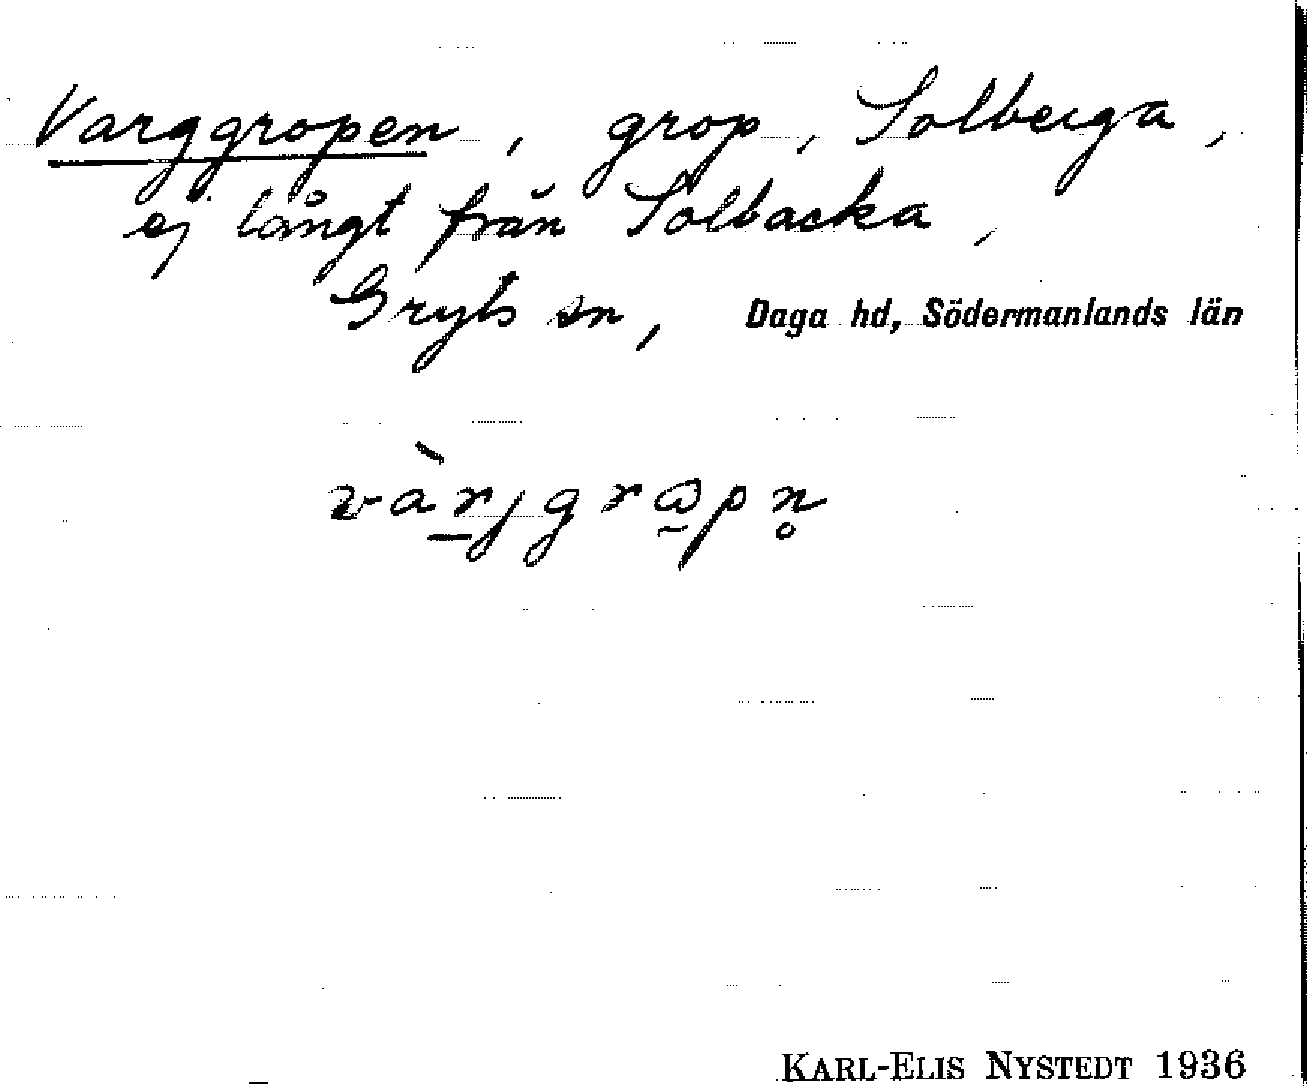 Varggropen, grop, Solberga,
ej långt från Solbacka,
Gryts sn, Daga hd, Södermanlands län
vàrjgrapn̥
KARL-ELIS NYSTEDT 1936